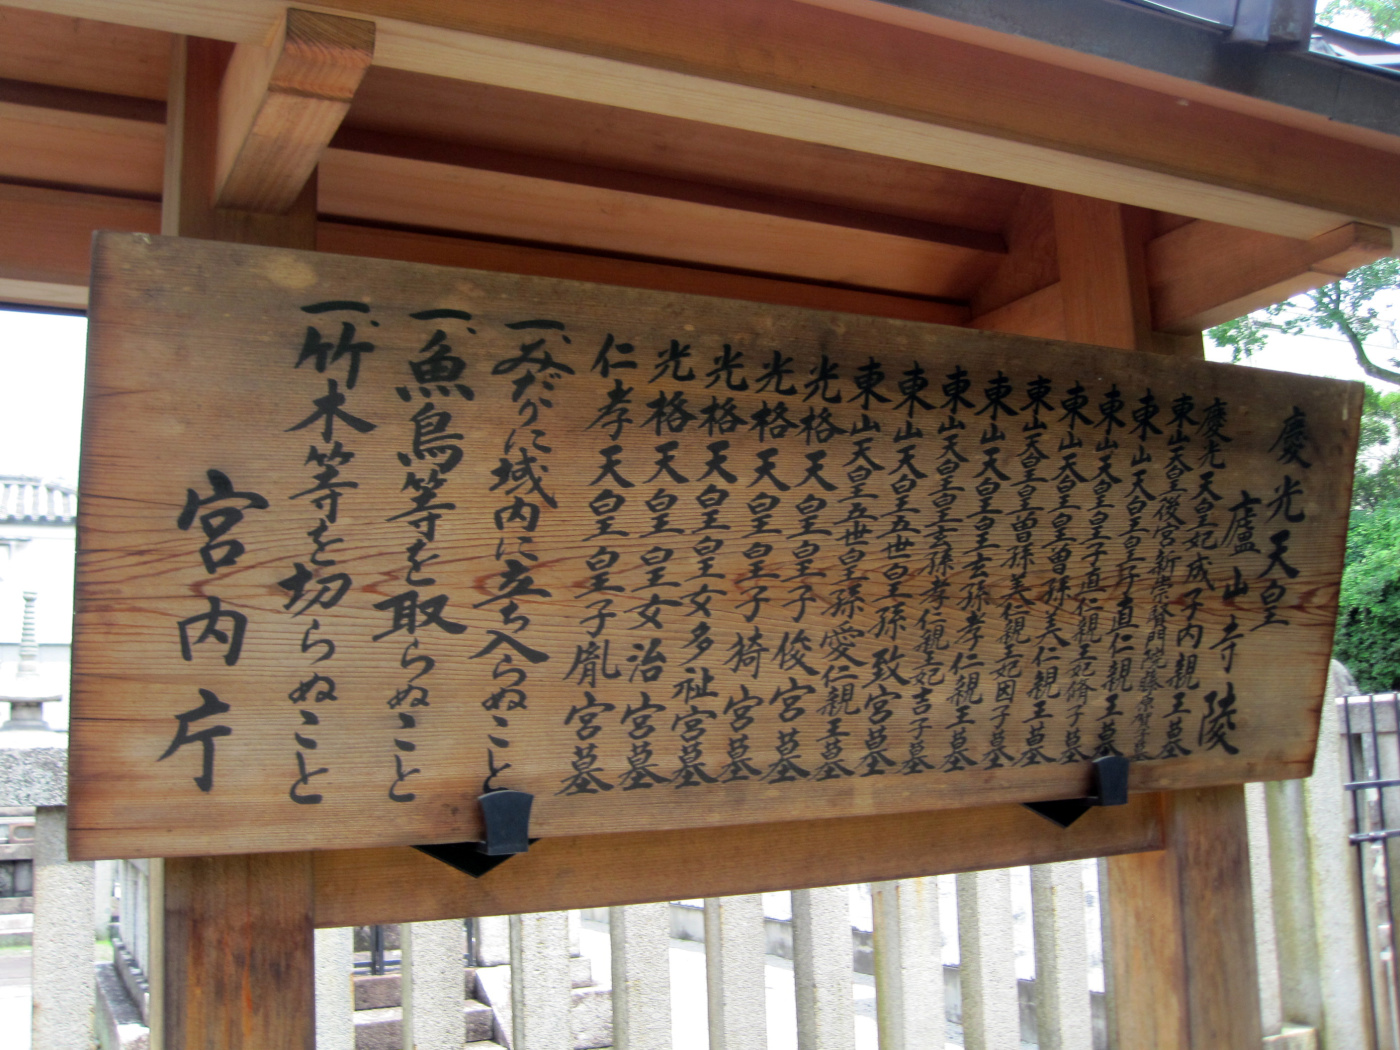 慶光天皇
廬山寺陵
慶光天皇妃成子内親王墓
東山天皇後宮新崇賢門院藤原賀子墓
東山天皇皇子直仁親王墓
東山天皇皇子直仁親王妃脩子墓
東山天皇皇曽孫美仁親王墓
東山天皇皇曽孫美仁親王妃因子墓
東山天皇皇玄孫孝仁親王墓
東山天皇皇玄孫孝仁親王妃吉子墓
東山天皇五世皇孫致宮墓
東山天皇五世皇孫愛仁親王墓
光格天皇皇子俊宮墓
光格天皇皇子猗宮墓
光格天皇皇女多祉宮墓
光格天皇皇女治宮墓
仁孝天皇皇子胤宮墓
一、みだりに域内に立ち入らぬこと
一、魚鳥等を取らぬこと
一、竹木等を切らぬこと
宮内庁